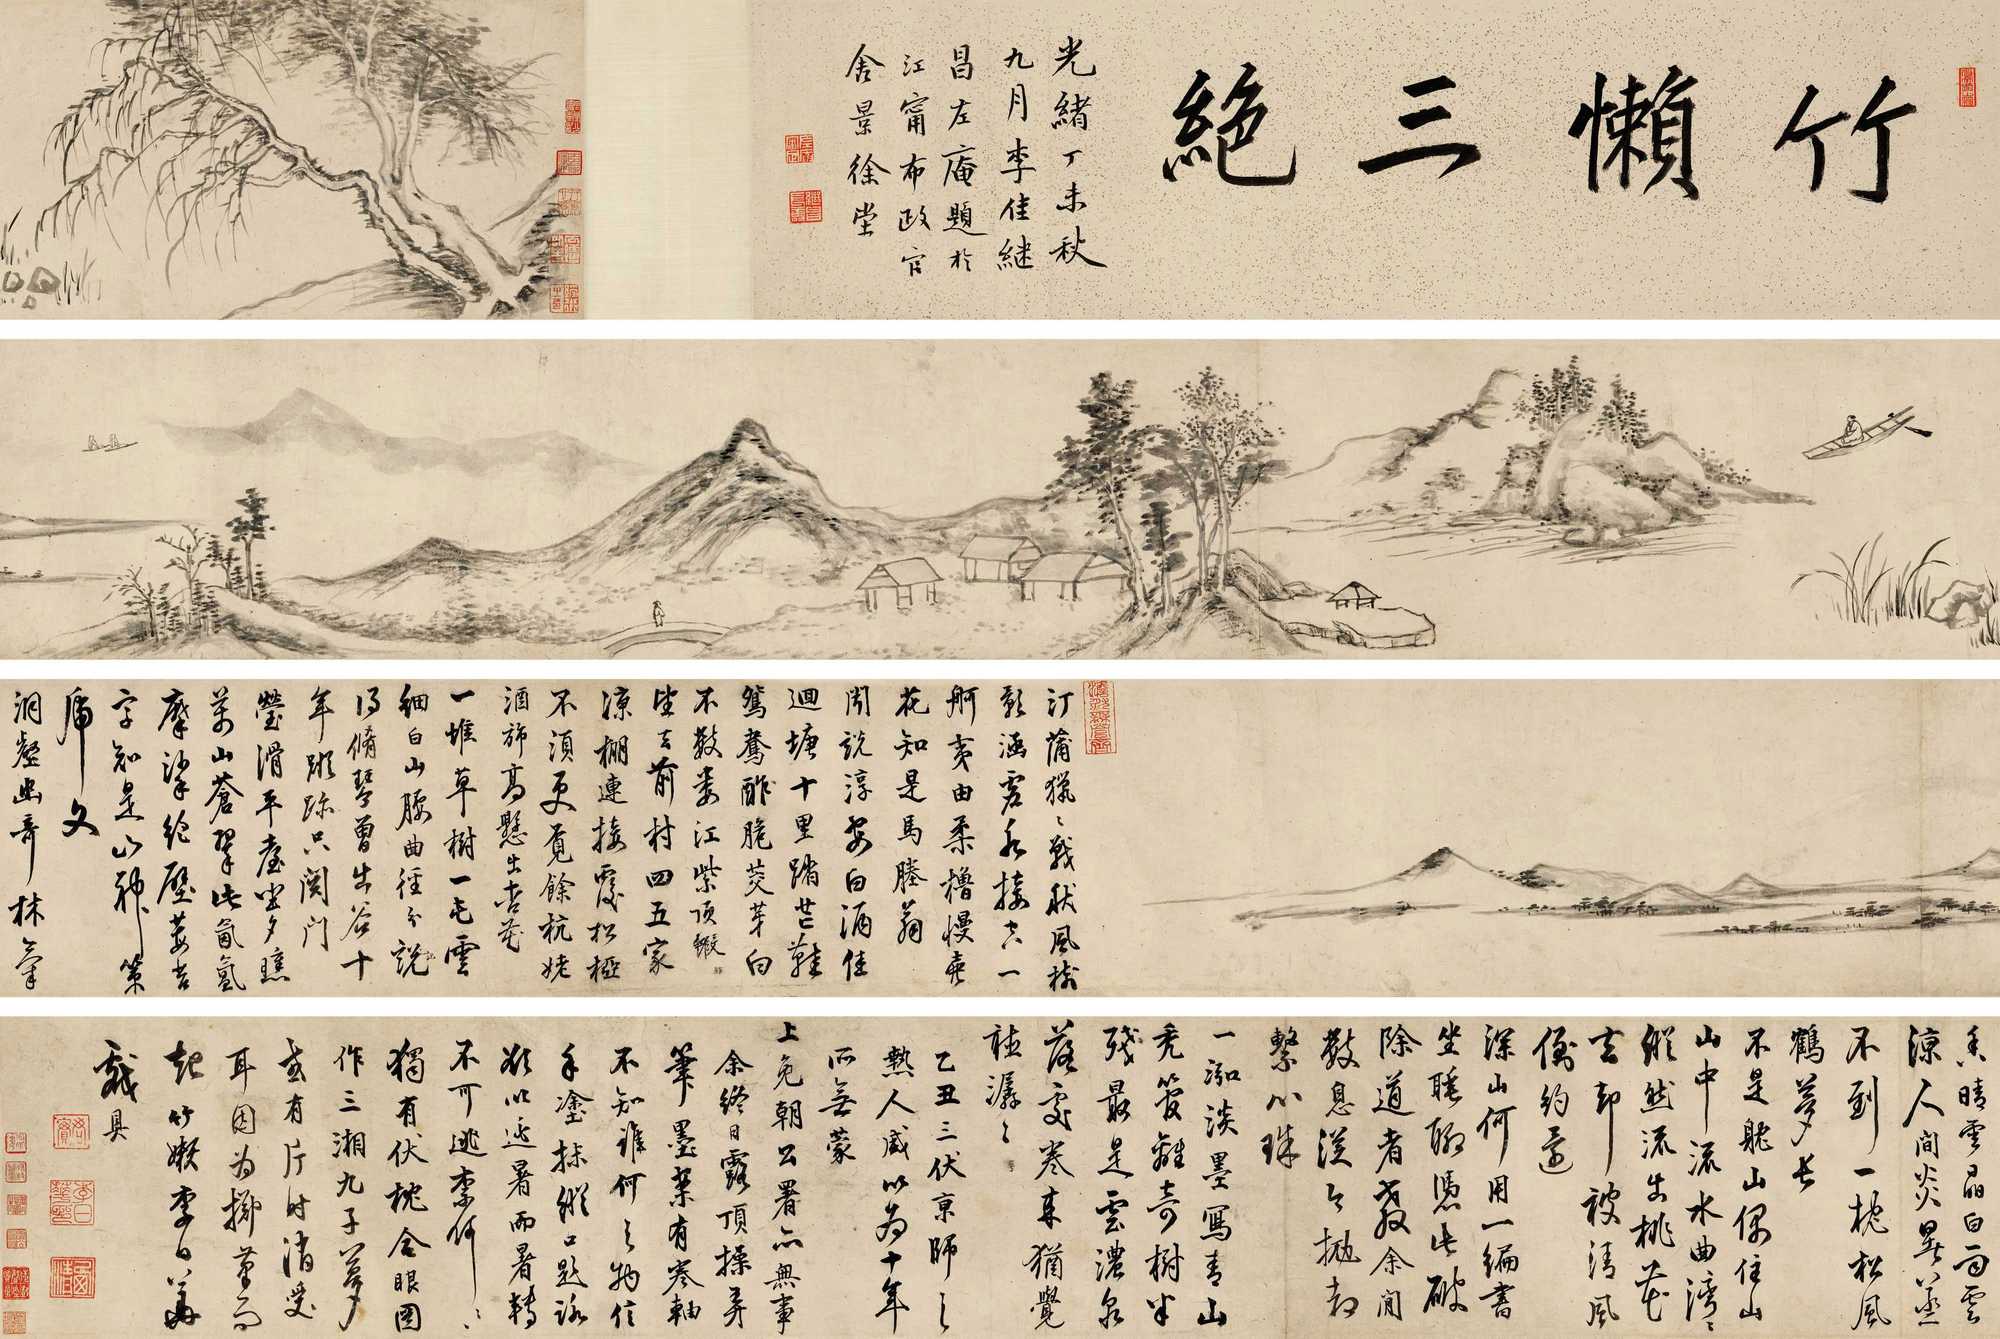 竹懶三絕
光緒丁未秋
九月李佳継
昌左庵題於
江甯布政官
舍景徐堂
汀蒲獵〻戰秋風樹
影涵虛水接空一
舸夷由柔櫓慢葦
花知是馬塍翁
閒說淳安白酒佳
迴塘十里踏芒鞋
鴛鴦酢脆茭芽白
不數婁江紫頂鰕
坐去前村四五家
涼棚連接覆松椏
不須更覓餘杭姥
酒斾高懸出杏花
一堆草樹一毛雲
細白山腰曲徑分說
得脩琴曾出谷十
年蹤跡只関門
瑩滑平臺坐夕曛
萬山蒼翠此氤氳
摩挲絕壁莓苔
字知是山神篆
虎文
洞壑幽奇林氣
香晴雲晶白雨雲
涼人間炎暑蒸
不到一枕松風
鶴夢長
不是躭山偶住山
山中流水曲灣〻
縱然流出桃花
去却被清風
約還
深山何用一編書
坐睡聊憑此破
除道者教余閒
數息從今拋却
繫心珠
一泓淡墨寫青山
禿管離奇樹半
殘最是雲濃泉
落處卷來猶覺
聴潺〻
乙丑三伏京師之
熱人咸以為十年
所無蒙
上免朝公署亦無事
余終日露頂操弄
筆墨案有卷軸
不知誰何之物信
手塗抹縱口題詠
欲以逃暑而暑轉
不可逃奈何〻
獨有伏枕合眼圖
作三湘九子夢
或有片時清受
耳因為擲筆而
起竹嬾李日華
戲具